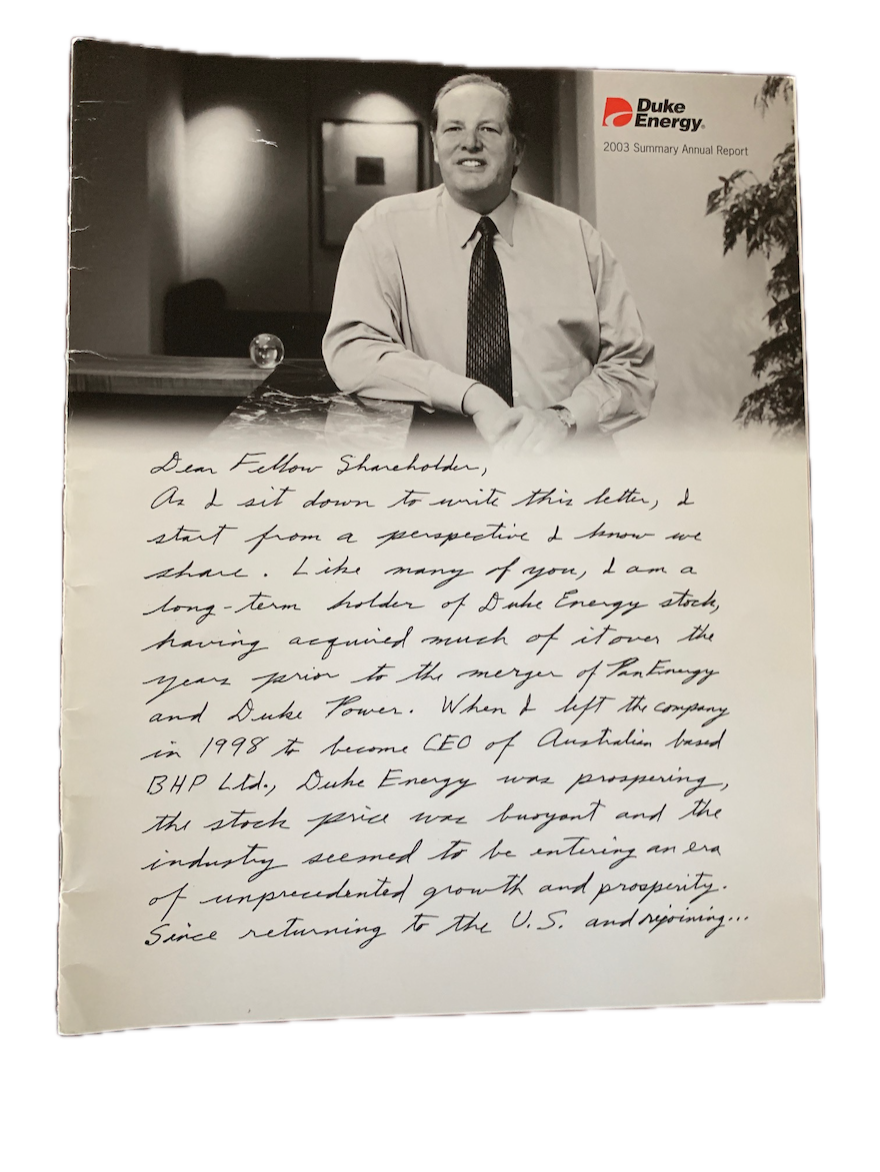 Duke
Energy®
2003 Summary Annual Report
Dear Fellow Shareholder,
As I sit down to write this letter, I
start from a perspective I know we
share. Like many of you, I am a
long-term holder of Duke Energy stock,
having acquired much of it over the
years prior to the merger of PanEnergy
and Duke Power. When I left the company
in 1998 to become CEO of Australian based
BHP Ltd., Duke Energy was prospering,
the stock price was buoyant and the
industry seemed to be entering an era
of unprecedented growth and prosperity.
Since returning to the U.S. and rejoining...